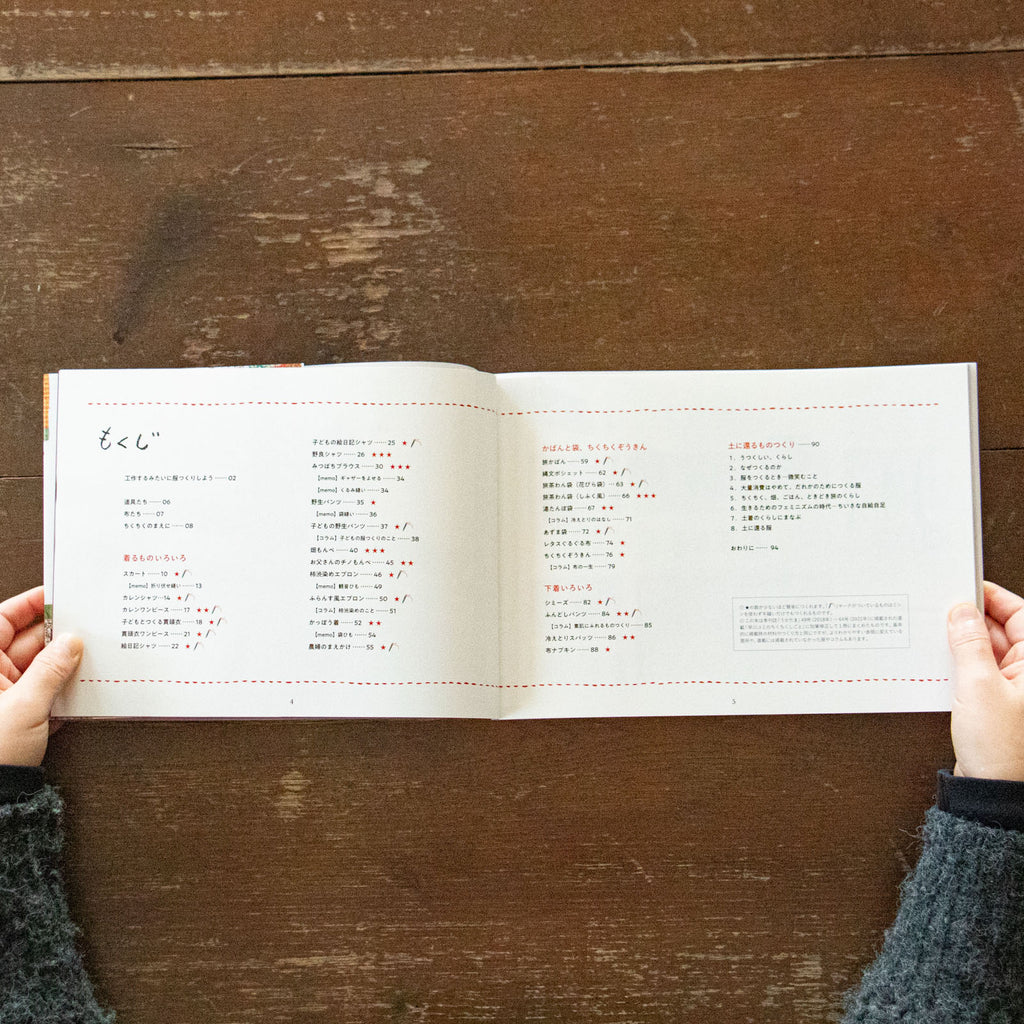 もくじ
工作するみたいに服つくりしよう……02
道具たち……06
布たち……07
ちくちくのまえに……08
着るものいろいろ
スカート……10 ★
【memo】折り伏せ縫い……13
カレンシャツ……14 ★
カレンワンピース……17 ★★
子どもとつくる貫頭衣……18 ★
貫頭衣ワンピース……21 ★
絵日記シャツ……22 ★
子どもの絵日記シャツ……25 ★
野良シャツ……26 ★★★
みつばちブラウス……30 ★★★
【memo】ギャザーをよせる……34
【memo】くるみ縫い……34
野生パンツ……35 ★
【memo】袋縫い……36
子どもの野生パンツ……37 ★
【コラム】子どもの服つくりのこと……38
畑もんぺ……40 ★★★
お父さんのチノもんぺ……45 ★★
柿渋染めエプロン……46 ★
【memo】観音ひも……49
ふらんす風エプロン……50 ★
【コラム】柿渋染めのこと……51
かっぽう着……52 ★★
【memo】袋ひも……54
農婦のまえかけ……55 ★
4
かばんと袋、ちくちくぞうきん
旅かばん……59 ★
縄文ポシェット……62 ★
旅茶わん袋（花びら袋）……63 ★
旅茶わん袋（しふく風）……66 ★★★
湯たんぽ袋……67 ★★
【コラム】冷えとりのはなし……71
あずま袋……72 ★
レタスぐるぐる布……74 ★
ちくちくぞうきん……76 ★
【コラム】布の一生……79
下着いろいろ
シミーズ……82 ★
ふんどしパンツ……84 ★★
【コラム】素肌にふれるものつくり……85
冷えとりスパッツ……86 ★★
布ナプキン……88 ★
土に還るものつくり……90
1. うつくしい、くらし
2. なぜつくるのか
3. 服をつくるとき─微笑むこと
4. 大量消費はやめて、だれかのためにつくる服
5. ちくちく、畑、ごはん、ときどき旅のくらし
6. 生きるためのフェミニズムの時代─ちいさな自給自足
7. 土着のくらしにまなぶ
8. 土に還る服
おわりに…… 94
5